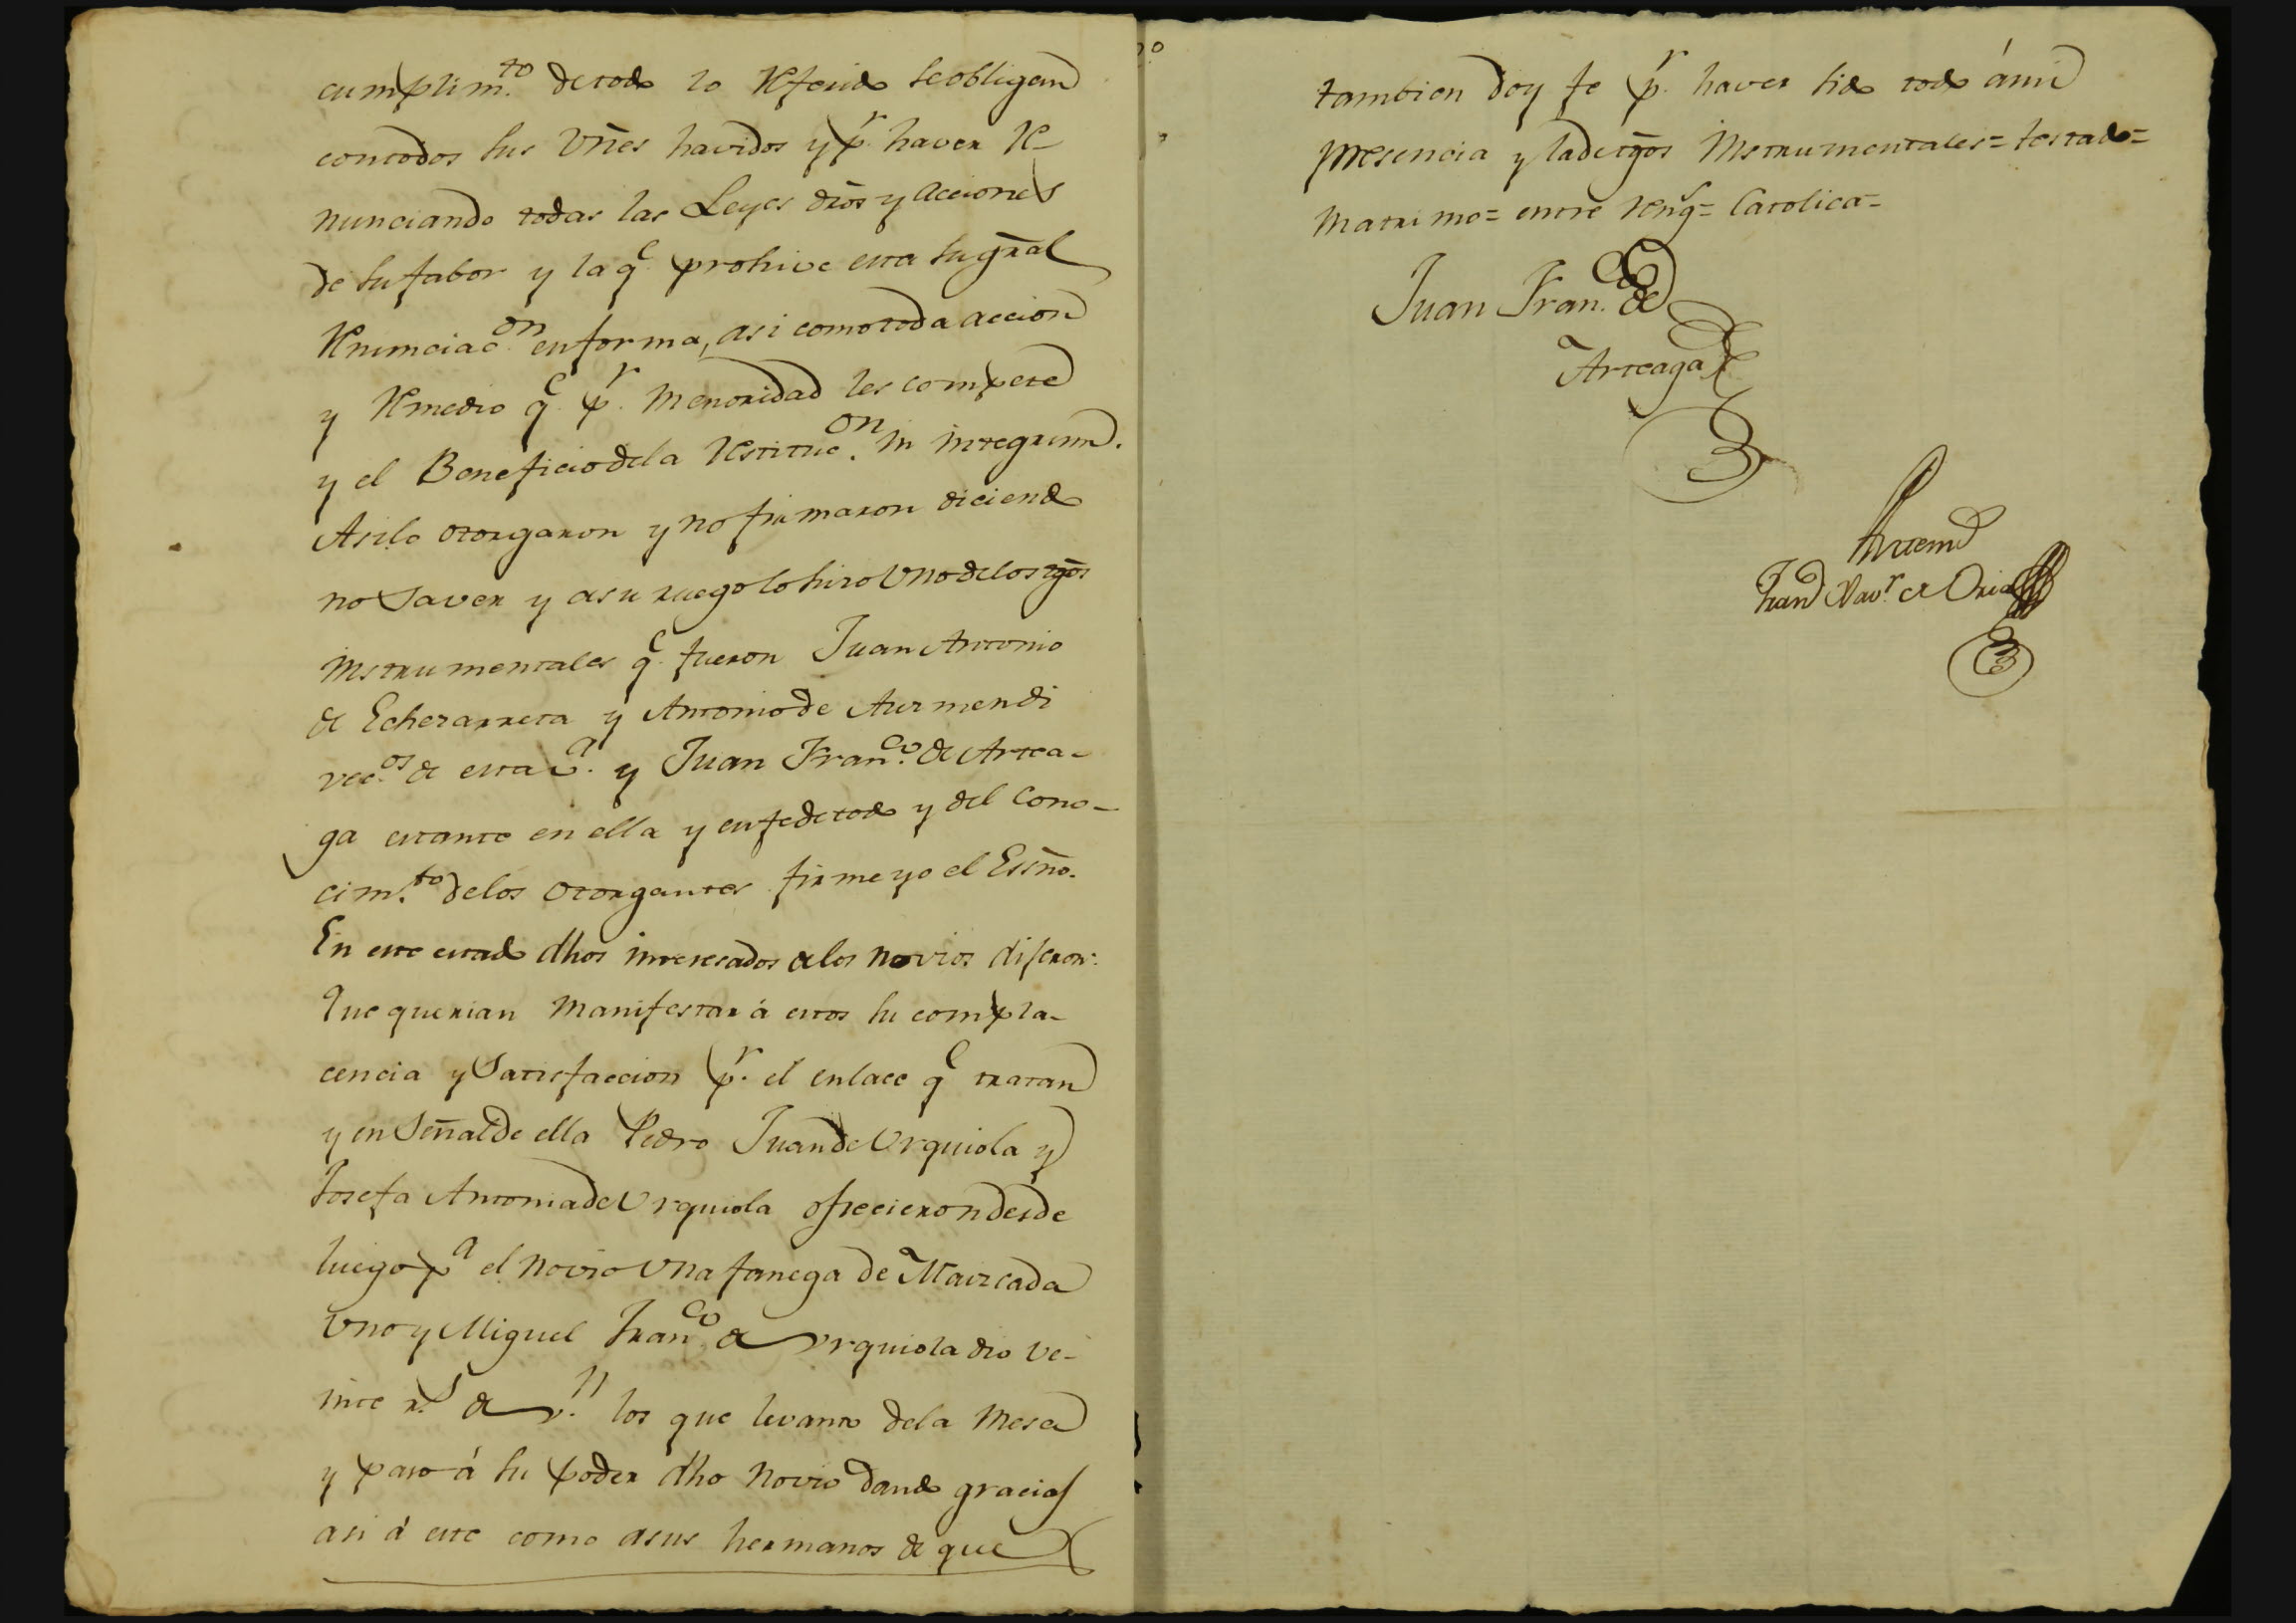 cumplim.to de todo lo Referido se obligan
con todos sus Vñes havidos y p.r haver Re-
nunciando todas las Leyes dr̃os y acciones
de su fabor y la q.e prohive esta su gr̃al
Renunciac.on en forma, asi como toda accion
y Remedio q.e p.r Menoridad les compete
y el Beneficio de la Restituc.on in integrum.
Asi lo otorgaron y no firmaron diciendo
no Saver y a su ruego lo hizo Uno de los tg̃os
instrumentales q.e fueron Juan Antonio
de Echezarreta y Antonio de Aurmendi
vec.os de esta V.a y Juan Fran.co de Artea-
ga estante en ella y en fe de todo y del Cono-
cim.to de los otorgantes firme yo el Essño.
En este estado dhos interesados a los novios dijeron:
Que querian manifestar á estos su compla-
cencia y Satisfaccion p.r el enlace q.e tratan
y en Señal de ella Pedro Juan de Urquiola y
Josefa Antonia de Urquiola ofrecieron desde
luego p.a el novio Una fanega de Maiz cada
Uno y Miguel Fran.co de Urquiola dio ve-
inte r.s de v.n los que levanto de la Mesa
y paso á su poder dho novio dando gracias
asi á este como a sus hermanos de que
tambien doy fe p.r haver sido todo á mi
presencia y la de tg̃os instrumentales = testado =
Matrimo = entre Reng.s = Catolica =
Juan Fran.co de
Arteaga
Ante mi
Juan Xav.r de Oria